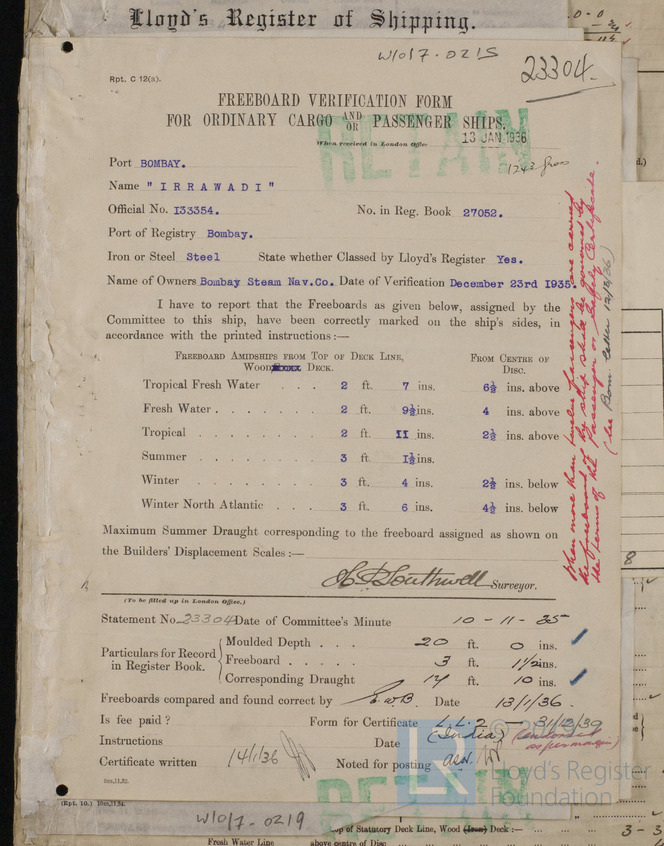 Lloyd's Register of Shipping.
W1017-0219
23304
Rpt. C 12(a).
FREEBOARD VERIFICATION FORM
FOR ORDINARY CARGO AND/OR PASSENGER SHIPS.
RETAIN
When received in London Office
13 JAN 1936
1243 gross
Port BOMBAY.
Name "IRRAWADI"
Official No. 133354. No. in Reg. Book 27052.
Port of Registry Bombay.
Iron or Steel Steel State whether Classed by Lloyd's Register Yes.
Name of Owners Bombay Steam Nav.Co. Date of Verification December 23rd 1935.
I have to report that the Freeboards as given below, assigned by the
Committee to this ship, have been correctly marked on the ship's sides, in
accordance with the printed instructions:—
FREEBOARD AMIDSHIPS FROM TOP OF DECK LINE, FROM CENTRE OF
WOOD DECK. DISC.
Tropical Fresh Water . . . 2 ft. 7 ins. 6½ ins. above
Fresh Water . . . . . . 2 ft. 9½ ins. 4 ins. above
Tropical . . . . . . . 2 ft. 11 ins. 2½ ins. above
Summer . . . . . . . 3 ft. 1½ ins.
Winter . . . . . . . 3 ft. 4 ins. 2½ ins. below
Winter North Atlantic . . . 3 ft. 6 ins. 4½ ins. below
Maximum Summer Draught corresponding to the freeboard assigned as shown on
the Builders' Displacement Scales:—
Southwell Surveyor.
(To be filled up in London Office.)
Statement No. 23304 Date of Committee's Minute 10-11-35
Particulars for Record in Register Book.
Moulded Depth . . . 20 ft. 0 ins.
Freeboard . . . . . 3 ft. 1½ ins.
Corresponding Draught 14 ft. 10 ins.
Freeboards compared and found correct by E.W.B. Date 13/1/36.
Is fee paid? Form for Certificate L.L.2 — 31/12/39
(India) (endorsed as per margin)
Instructions Date
Certificate written 14/1/36 Noted for posting
5m,11,32.
RETAIN
© 2020
LR
Lloyd's Register
Foundation
(Rpt. 10.) 10m,11,34.
W1017-0219
Top of Statutory Deck Line, Wood (Iron) Deck:—
Fresh Water Line above centre of Disc
3-3
8
When more than twelve passengers are carried
the freeboard of the ship shall be governed by
the terms of the Passenger or Safety Certificate.
(see Bom. letter 12/3/36)